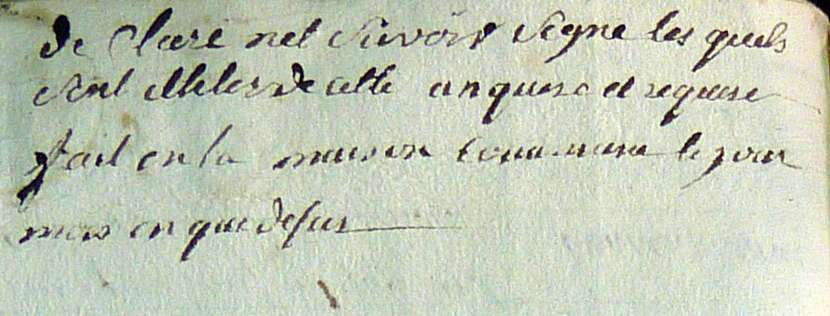 de Claré net Savoir Signe les quels
ont de cette enquere et requere
fait en la maison Commune le jour
mois en que desus